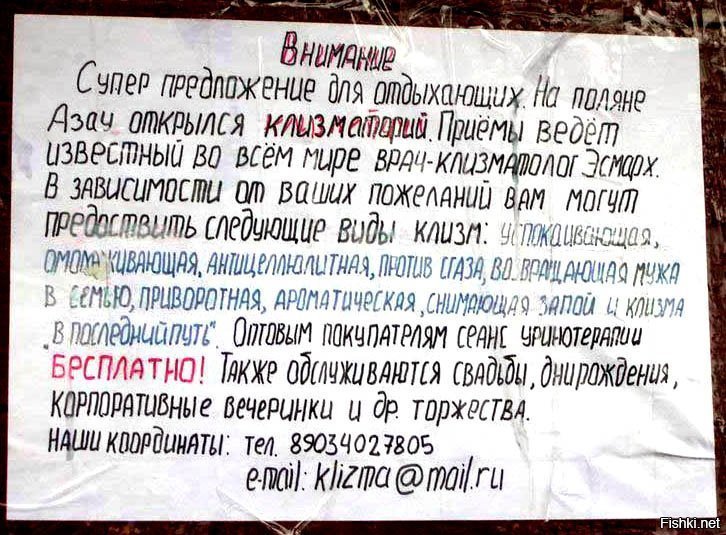 Внимание
Супер предложение для отдыхающих. На поляне
Азау открылся клизматорий. Приёмы ведёт
известный во всём мире врач-клизматолог Эсмарх.
В зависимости от ваших пожеланий вам могут
предоставить следующие виды клизм: успокаивающая,
омолаживающая, антицеллюлитная, против сглаза, возвращающая мужа
в семью, приворотная, ароматическая, снимающая запой и клизма
„в последний путь". Оптовым покупателям сеанс уринотерапии
БЕСПЛАТНО! Также обслуживаются свадьбы, дни рождения,
корпоративные вечеринки и др. торжества.
наши координаты: тел. 89034027805
e-mail: klizma@mail.ru
Fishki.net